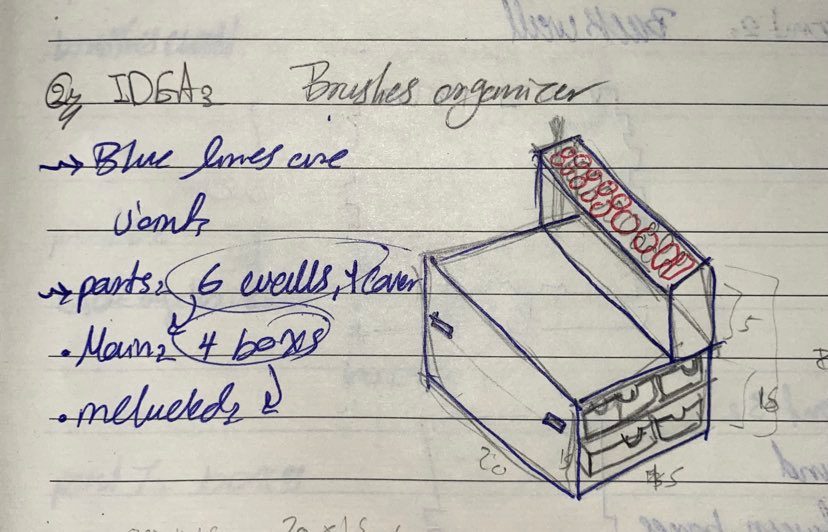 2, IDEA: Brushes organizer
→ Blue lines are
Joint,
→ parts: 6 walls, + Cover
• Main: 4 boxs
• included:
5
15
20
15